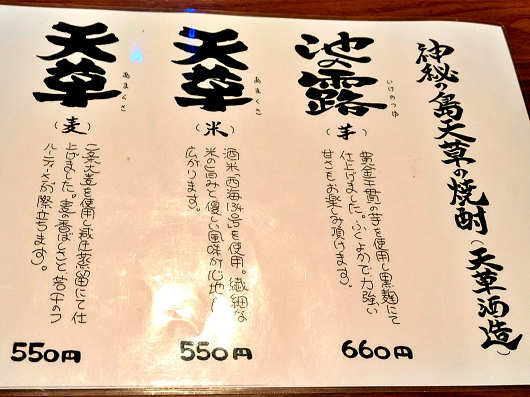 神秘の島天草の焼酎(天草酒造)
池の露
いけのつゆ
(芋)
黄金千貫の芋を使用し黒麹にて
仕上げました。ふくよかで力強い
甘さもお楽しみ頂けます。
660円
天草
あまくさ
(米)
酒米、西海134号を使用。繊細な
米の旨みと優しい風味が心地よく
広がります。
550円
天草
あまくさ
(麦)
二条大麦を使用し減圧蒸留にて仕
上げました。麦の香ばしさと若干のフ
ルーティーさが際立ちます。
550円